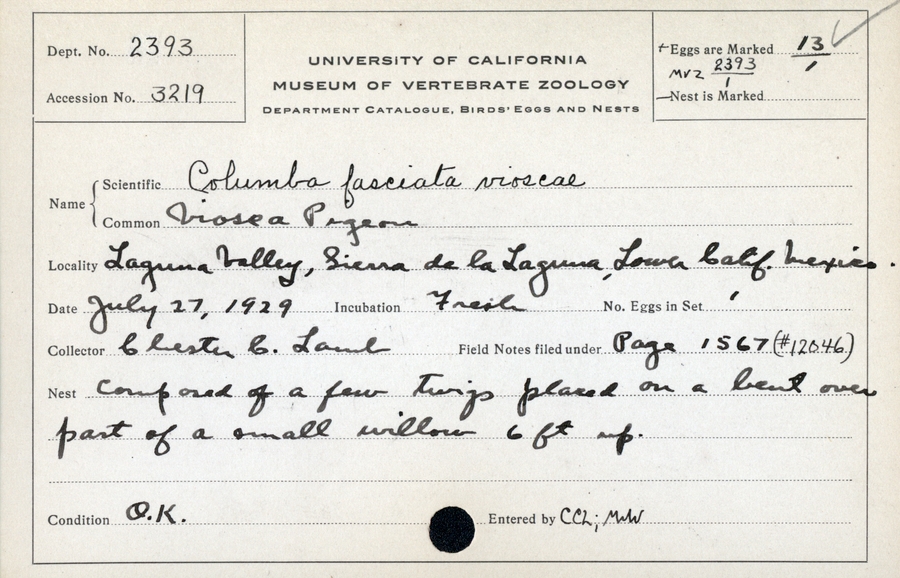 Dept. No. 2393
Accession No. 3219
UNIVERSITY OF CALIFORNIA
MUSEUM OF VERTEBRATE ZOOLOGY
DEPARTMENT CATALOGUE, BIRDS' EGGS AND NESTS
+Eggs are Marked 13/1
MVZ 2393/1
—Nest is Marked
Name
Scientific Columba fasciata vioscae
Common Viosca Pigeon
Locality Laguna Valley, Sierra de la Laguna, Lower Calif. Mexico.
Date July 27, 1929 Incubation Fresh No. Eggs in Set 1
Collector Chester C. Lamb Field Notes filed under Page 1567 (#12046)
Nest composed of a few twigs placed on a bent over
part of a small willow 6 ft up.
Condition O.K. Entered by CCL;